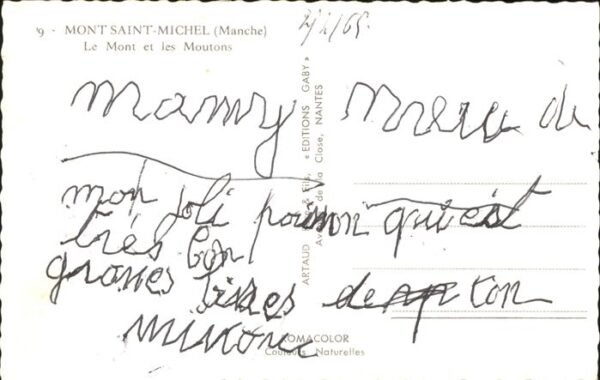 9 - MONT SAINT-MICHEL (Manche)
Le Mont et les Moutons
2/2/65
Mamy Merci de
mon joli poisson qui est
très bon
grosses bises de ton
ARTAUD Fils, « EDITIONS GABY »
de la Close, NANTES
ROMACOLOR
Couleurs Naturelles